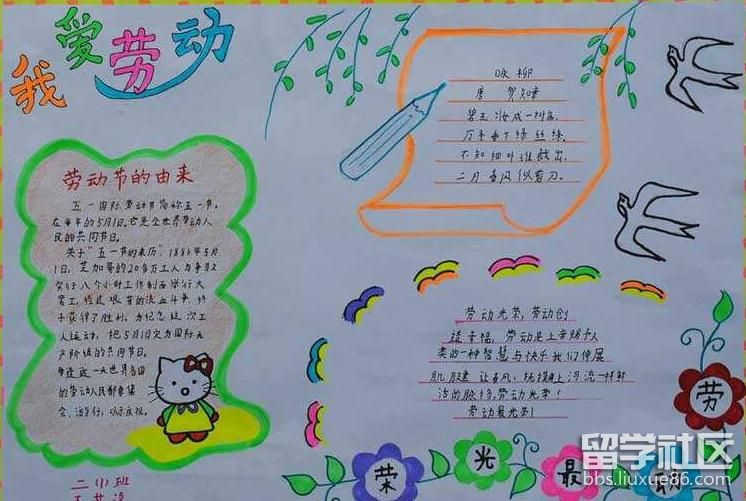 我爱劳动
咏柳
唐 贺知章
碧玉妆成一树高,
万千垂下绿丝绦,
不知细叶谁裁出,
二月春风似剪刀。
劳动节的由来
五一国际劳动节简称五一节,
在每年的5月1日,它是全世界劳动人
民的共同节日。
关于"五一节的来历",1886年5月
1日,芝加哥的20多万工人为争取
实行八个小时工作制而举行大
罢工,经过艰苦的流血斗争,终
于获得了胜利,为纪念这次工
人运动,把5月1日定为国际无
产阶级的共同节日。
每逢这一天世界各国
的劳动人民都要集
会、游行,以示庆祝。
劳动光荣,劳动创
造幸福,劳动是上帝赐予人
类的一种智慧与快乐我们伸展
肌腱 让春风
河流一样鲜
活的脉络,劳动光荣!
劳动最光荣!
劳
荣光最动
二小班
留学社区
bbs.liuxue86.com